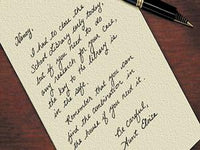 Nancy,
I had to close the
School Library early today.
but if you need to do
any research for your case,
the key to the library is
in the safe.
Remember that you can
find the combination in
the house if you need it.
Be careful,
Aunt Eloise